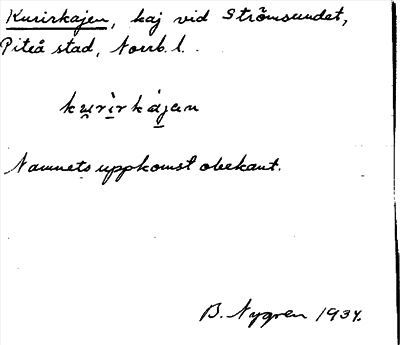 Kurirkajen, kaj vid Strömsundet,
Piteå stad, Norrb. l.
kurìrkájan
Namnets uppkomst obekant.
B. Nygren 1934.